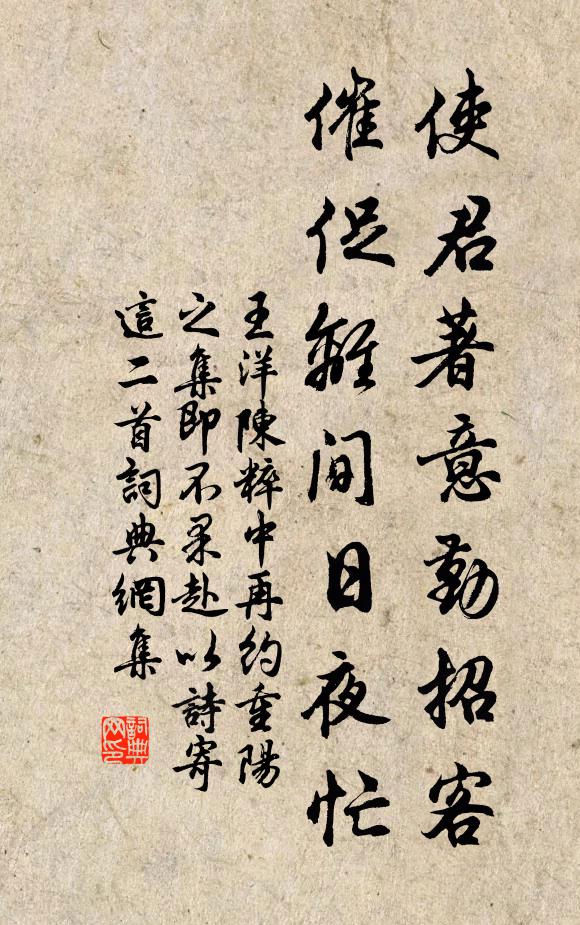 使君著意勤招客
催促離間日夜忙
王洋陳粹中再約重陽
之集即不果赴以詩寄
這二首詞典網集
詞典网印